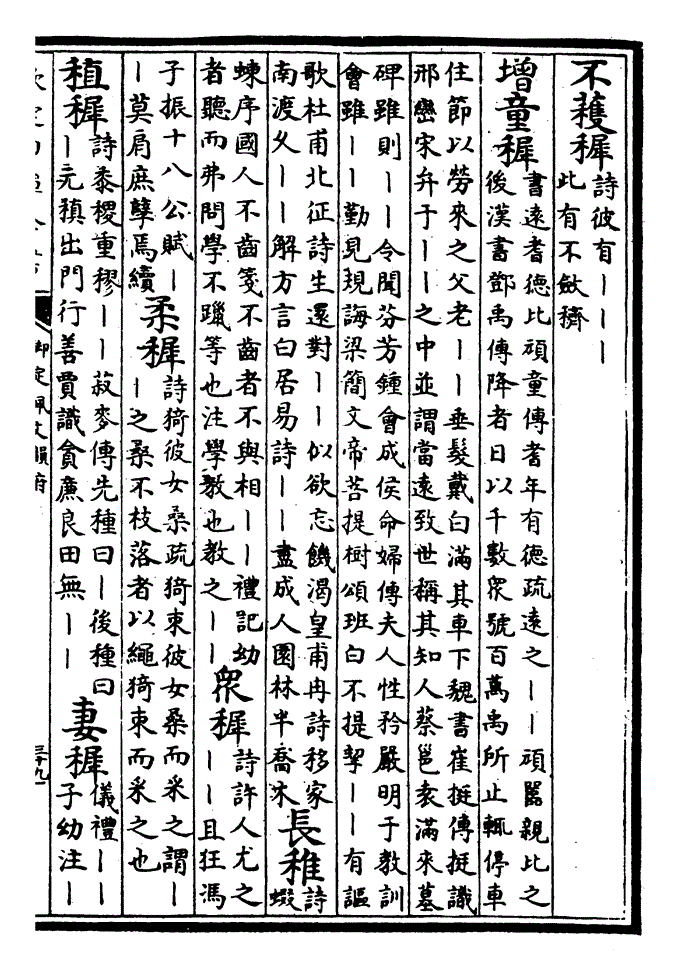 不穫穉
詩彼有｜｜｜
此有不斂穧
增童穉
書遠耆德比頑童傳耆年有德疏遠之｜｜頑嚚親比之
後漢書鄧禹傳降者日以千數衆號百萬禹所止輒停車
住節以勞來之父老｜｜垂髮戴白滿其車下魏書崔挺傳挺識
邢巒宋弁于｜｜之中並謂當遠致世稱其知人蔡邕袁滿來墓
碑雖則｜｜令聞芬芳鍾會成侯命婦傳夫人性矜嚴明于教訓
會雖｜｜勤見現誨梁簡文帝菩提樹頌班白不提挈｜｜有謳
歌杜甫北征詩生還對｜｜似欲忘饑渴皇甫冉詩移家
南渡久｜｜解方言白居易詩｜｜盡成人園林半喬木
長稚
詩
蝦
蝀序國人不齒箋不齒者不與相｜｜禮記幼
者聽而弗問學不躐等也注學教也教之｜｜
衆穉
詩許人尤之
｜｜且狂馮
子振十八公賦｜
｜莫肩庶孽焉續
柔穉
詩猗彼女桑疏猗束彼女桑而采之謂｜
｜之桑不枝落者以繩猗束而采之也
植穉
詩黍稷重穋｜｜菽麥傳先種曰｜後種曰
｜元稹出門行善賈識貪廉良田無｜｜
妻穉
儀禮｜｜
子幼注｜
御定佩文韻府
三十九